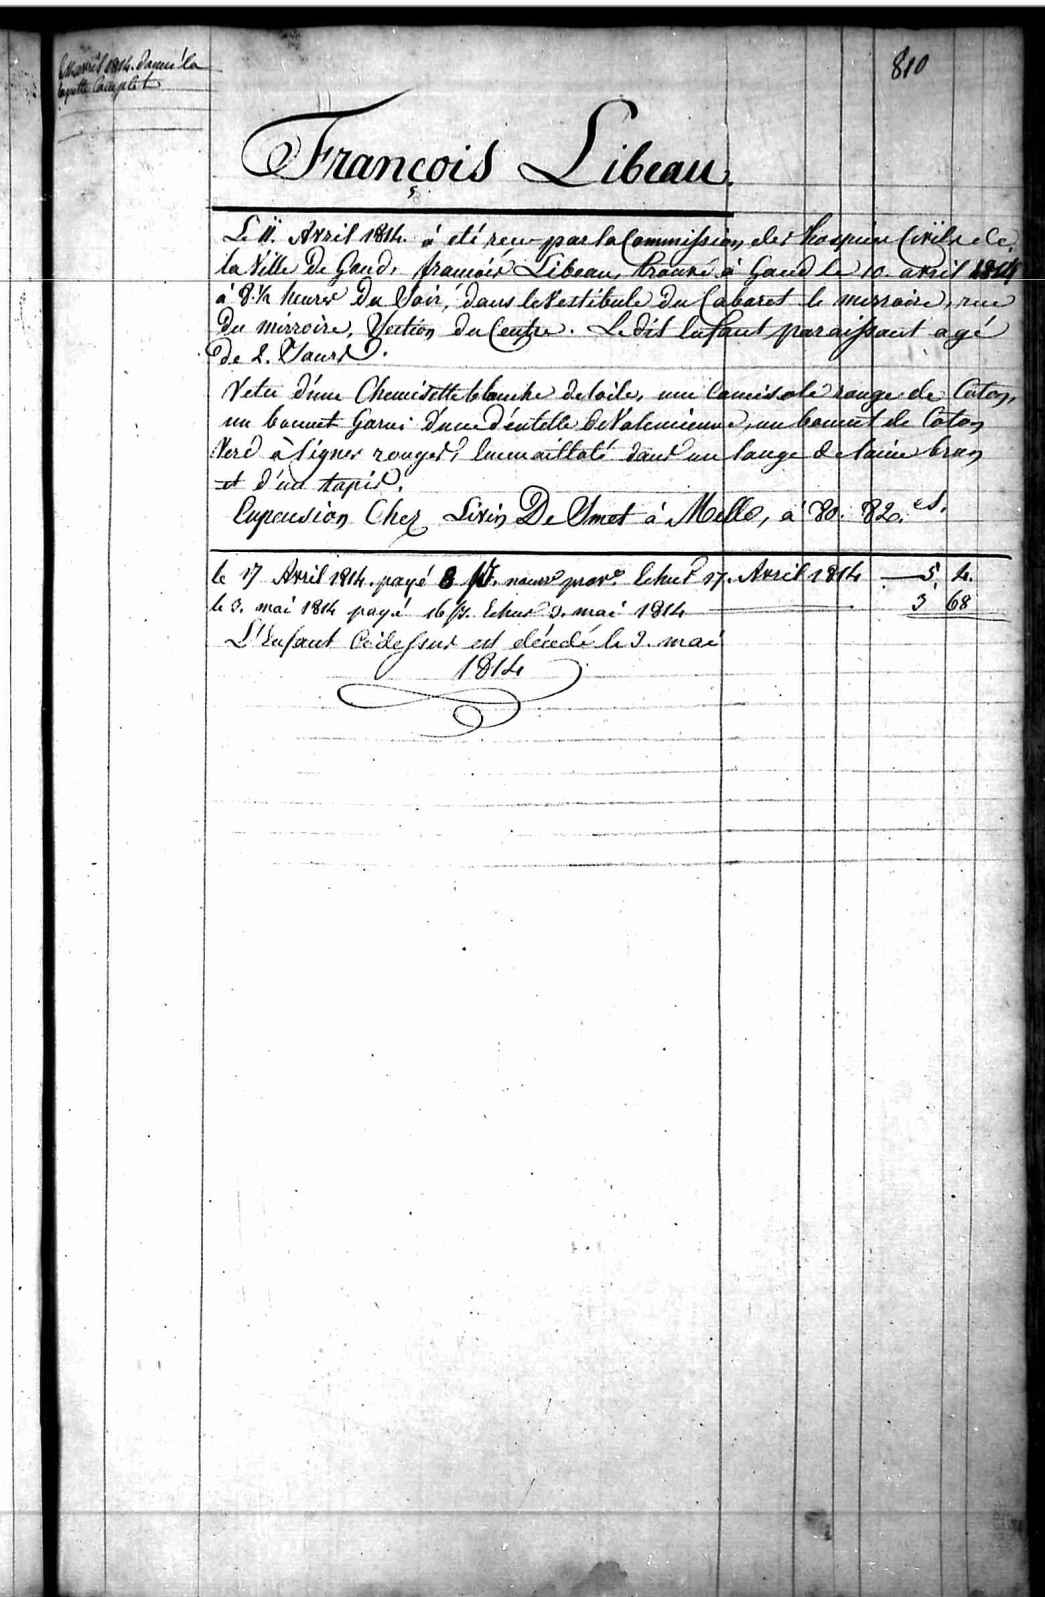 avril 1814. donné la
layette Complet
810
François Libeau.
Le 11. Avril 1814. à été recu par la Commission des hospices Civils de
la Ville De Gand, francois Libeau, trouvé à Gand le 10. avril 1814
à 8 ½ heures Du Soir, dans le Vestibule du Cabaret le mirroire, rue
Du mirroire, Section du Centre. Le dit Enfant paraissant agé
de 2. Jours.
Vetu d'une Chemisette blanche de toile, une Camisole rouge de Coton,
un bonnet Garni d'une dentelle de Valencienne, un bonnet de Coton
Verd à lignes rouges, Emmailloté dans un lange de laine brun
et d'un tapis.
Enpension Chez Livin De Smet à Melle, à 80. 82. es.
le 17 Avril 1814. payé 8 Echus 17. Avril 1814 — 5 4.
le 3. mai 1814 payé 16 Echus 3. mai 1814 — 3 68
L'Enfant Cidessus est décédé le 3. mai
1814